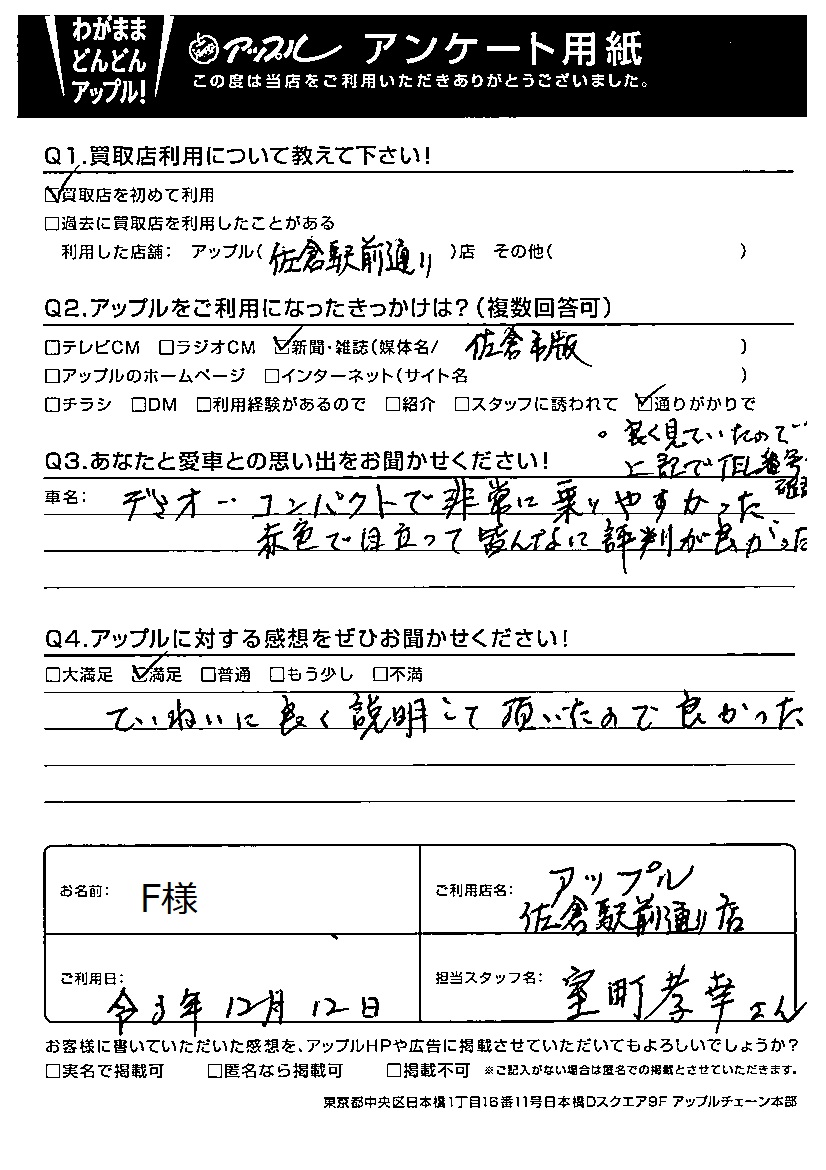 わがまま
どんどん
アップル!
アップル アンケート用紙
この度は当店をご利用いただきありがとうございました。
Q1.買取店利用について教えて下さい!
☑買取店を初めて利用
□過去に買取店を利用したことがある
利用した店舗: アップル(佐倉駅前通り)店 その他( )
Q2.アップルをご利用になったきっかけは?(複数回答可)
□テレビCM □ラジオCM ☑新聞・雑誌(媒体名/ 佐倉市版 )
□アップルのホームページ □インターネット(サイト名 )
□チラシ □DM □利用経験があるので □紹介 □スタッフに誘われて ☑通りがかりで
。良く見ていたので
上記でTEL番号
確認
Q3.あなたと愛車との思い出をお聞かせください!
車名: デミオ… コンパクトで非常に乗りやすかった
赤色で目立って皆んなに評判が良かった
Q4.アップルに対する感想をぜひお聞かせください!
□大満足 ☑満足 □普通 □もう少し □不満
ていねいに良く説明して頂いたので良かった
お名前: F様
ご利用店名: アップル
佐倉駅前通り店
ご利用日: 令3年12月12日
担当スタッフ名: 室町孝幸さん
お客様に書いていただいた感想を、アップルHPや広告に掲載させていただいてもよろしいでしょうか?
□実名で掲載可 □匿名なら掲載可 □掲載不可 ※ご記入がない場合は匿名での掲載とさせていただきます。
東京都中央区日本橋1丁目16番11号日本橋Dスクエア9F アップルチェーン本部